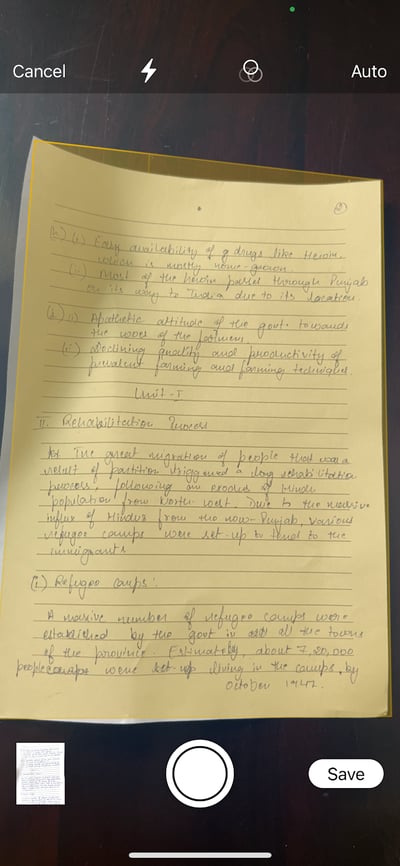 Cancel Auto
(h) (i) Easy availability of drugs like heroin.
which is mostly home-grown
(ii) Most of the heroin passes through Punjab
on its way to India due to its location.
(i) Apathetic attitude of the govt. towards
the woes of the farmers.
(ii) Declining quality and productivity of
prevalent farming and farming techniques.
Unit-I
II. Rehabilitation Process
The great migration of people that was a
result of partition triggered a long rehabilitation
process, following an exodus of Hindu
population from North-west. Due to the massive
influx of Hindus from the now-Punjab, various
refugee camps were set-up to tend to the
immigrants
(i.) Refugee camps:
A massive number of refugee camps were
established by the govt in all the towns
of the province. Estimately, about 7,20,000
people were living in the camps, by
October 1947.
Save